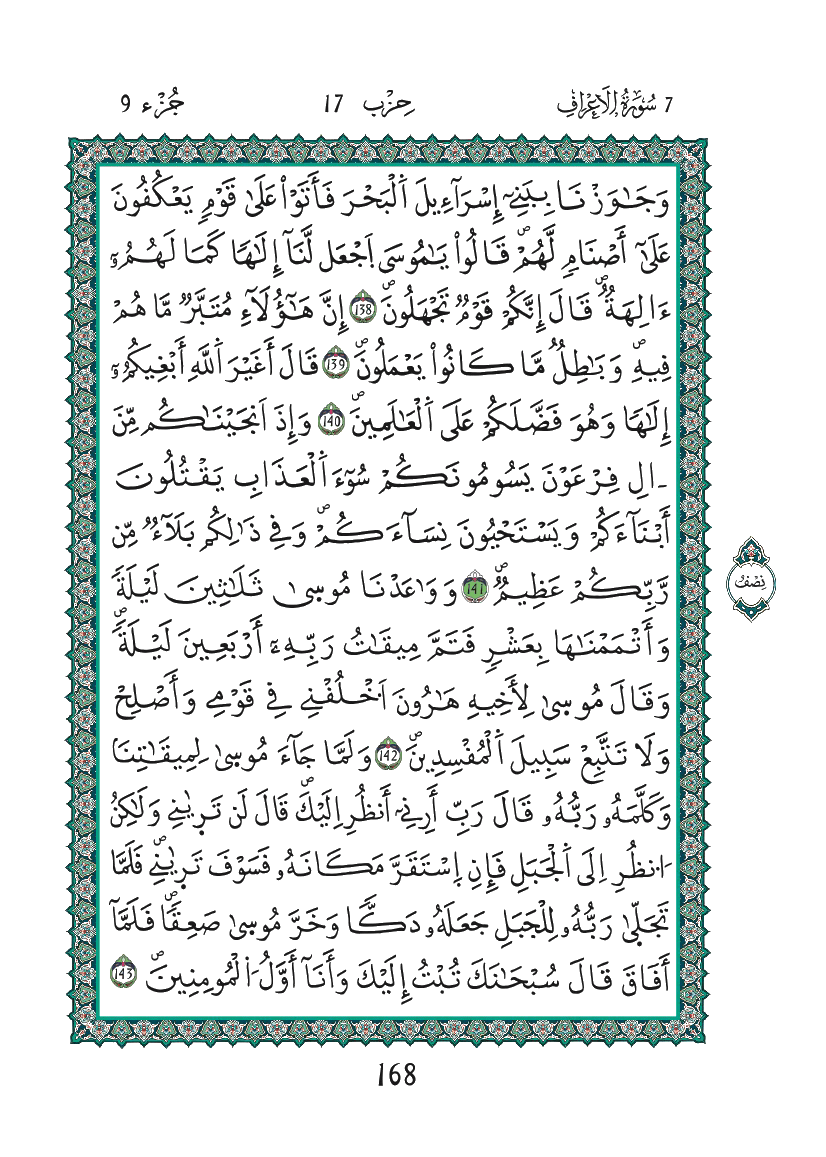 7 سُورَةُ الْأَعْرَافِ حِزْب 17 جُزْء 9
وَجَٰوَزْنَا بِبَنِےٓ إِسْرَآءِيلَ اَ۬لْبَحْرَ فَأَتَوْاْ عَلَىٰ قَوْمٖ يَعْكُفُونَ
عَلَىٰٓ أَصْنَامٖ لَّهُمْۖ قَالُواْ يَٰمُوسَى اَ۪جْعَل لَّنَآ إِلَٰهاٗ كَمَا لَهُمُۥٓ
ءَالِهَةٞۖ قَالَ إِنَّكُمْ قَوْمٞ تَجْهَلُونَۖ 138 إِنَّ هَٰٓؤُلَآءِ مُتَبَّرٞ مَّا هُمْ
فِيهِ وَبَٰطِلٞ مَّا كَانُواْ يَعْمَلُونَۖ 139 قَالَ أَغَيْرَ اَ۬للَّهِ أَبْغِيكُمُۥٓ
إِلَٰهاٗ وَهُوَ فَضَّلَكُمْ عَلَى اَ۬لْعَٰلَمِينَۖ 140 وَإِذَ اَنجَيْنَٰكُم مِّنَ
اٰلِ فِرْعَوْنَ يَسُومُونَكُمْ سُوٓءَ اَ۬لْعَذَابِ يَقْتُلُونَ
أَبْنَآءَكُمْ وَيَسْتَحْيُونَ نِسَآءَكُمْۖ وَفِے ذَٰلِكُم بَلَآءٞ مِّن
رَّبِّكُمْ عَظِيمٞۖ 141 وَوَٰعَدْنَا مُوسَىٰ ثَلَٰثِينَ لَيْلَةٗ
وَأَتْمَمْنَٰهَا بِعَشْرٖ فَتَمَّ مِيقَٰتُ رَبِّهِۦٓ أَرْبَعِينَ لَيْلَةٗۖ
وَقَالَ مُوسَىٰ لِأَخِيهِ هَٰرُونَ اَ۟خْلُفْنِے فِے قَوْمِے وَأَصْلِحْ
وَلَا تَتَّبِعْ سَبِيلَ اَ۬لْمُفْسِدِينَۖ 142 وَلَمَّا جَآءَ مُوسَىٰ لِمِيقَٰتِنَا
وَكَلَّمَهُۥ رَبُّهُۥ قَالَ رَبِّ أَرِنِےٓ أَنظُرِ اِلَيْكَۖ قَالَ لَن تَر۪ىٰنِے وَلَٰكِنُ
اُ۟نظُرِ اِلَى اَ۬لْجَبَلِ فَإِنِ اِ۪سْتَقَرَّ مَكَانَهُۥ فَسَوْفَ تَر۪ىٰنِےۖ فَلَمَّا
تَجَلَّىٰ رَبُّهُۥ لِلْجَبَلِ جَعَلَهُۥ دَكّاٗ وَخَرَّ مُوسَىٰ صَعِقاٗۖ فَلَمَّآ
أَفَاقَ قَالَ سُبْحَٰنَكَ تُبْتُ إِلَيْكَ وَأَنَآ أَوَّلُ اُ۬لْمُومِنِينَۖ 143
نِصْفُ
168